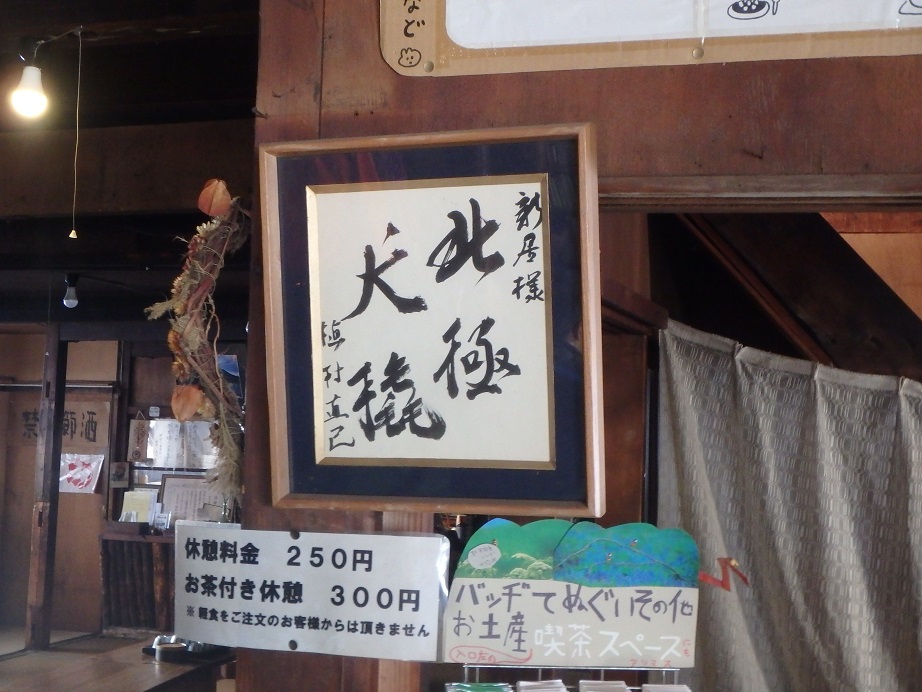 など
新居様
北極
犬橇
植村直己
禁 節酒
休憩料金 250円
お茶付き休憩 300円
※ 軽食をご注文のお客様からは頂きません
バッヂてぬぐいその他
お土産 喫茶スペース